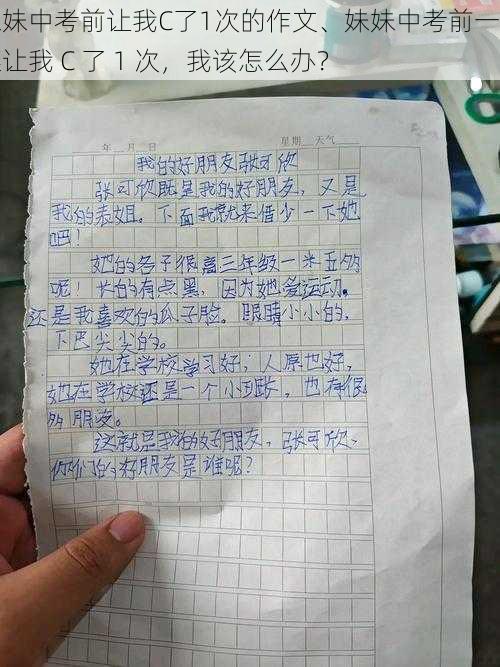 妹中考前让我C了1次的作文、妹妹中考前一
让我 C 了 1 次，我该怎么办？
年 月 日 星期 天气
我的好朋友张可欣
张可欣既是我的好朋友，又是
我的表姐。下面我就来借少一下她
吧！
她的各子很高三年级一米五多
呢！长的有点黑，因为她爱运动。
还是我喜欢的瓜子脸。眼睛小小的，
下巴尖尖的。
她在学校学习好；人原也好，
她在学校还是一个小班长，也有很
多朋友。
这就是我的好朋友，张可欣、
你们的好朋友是谁呢？